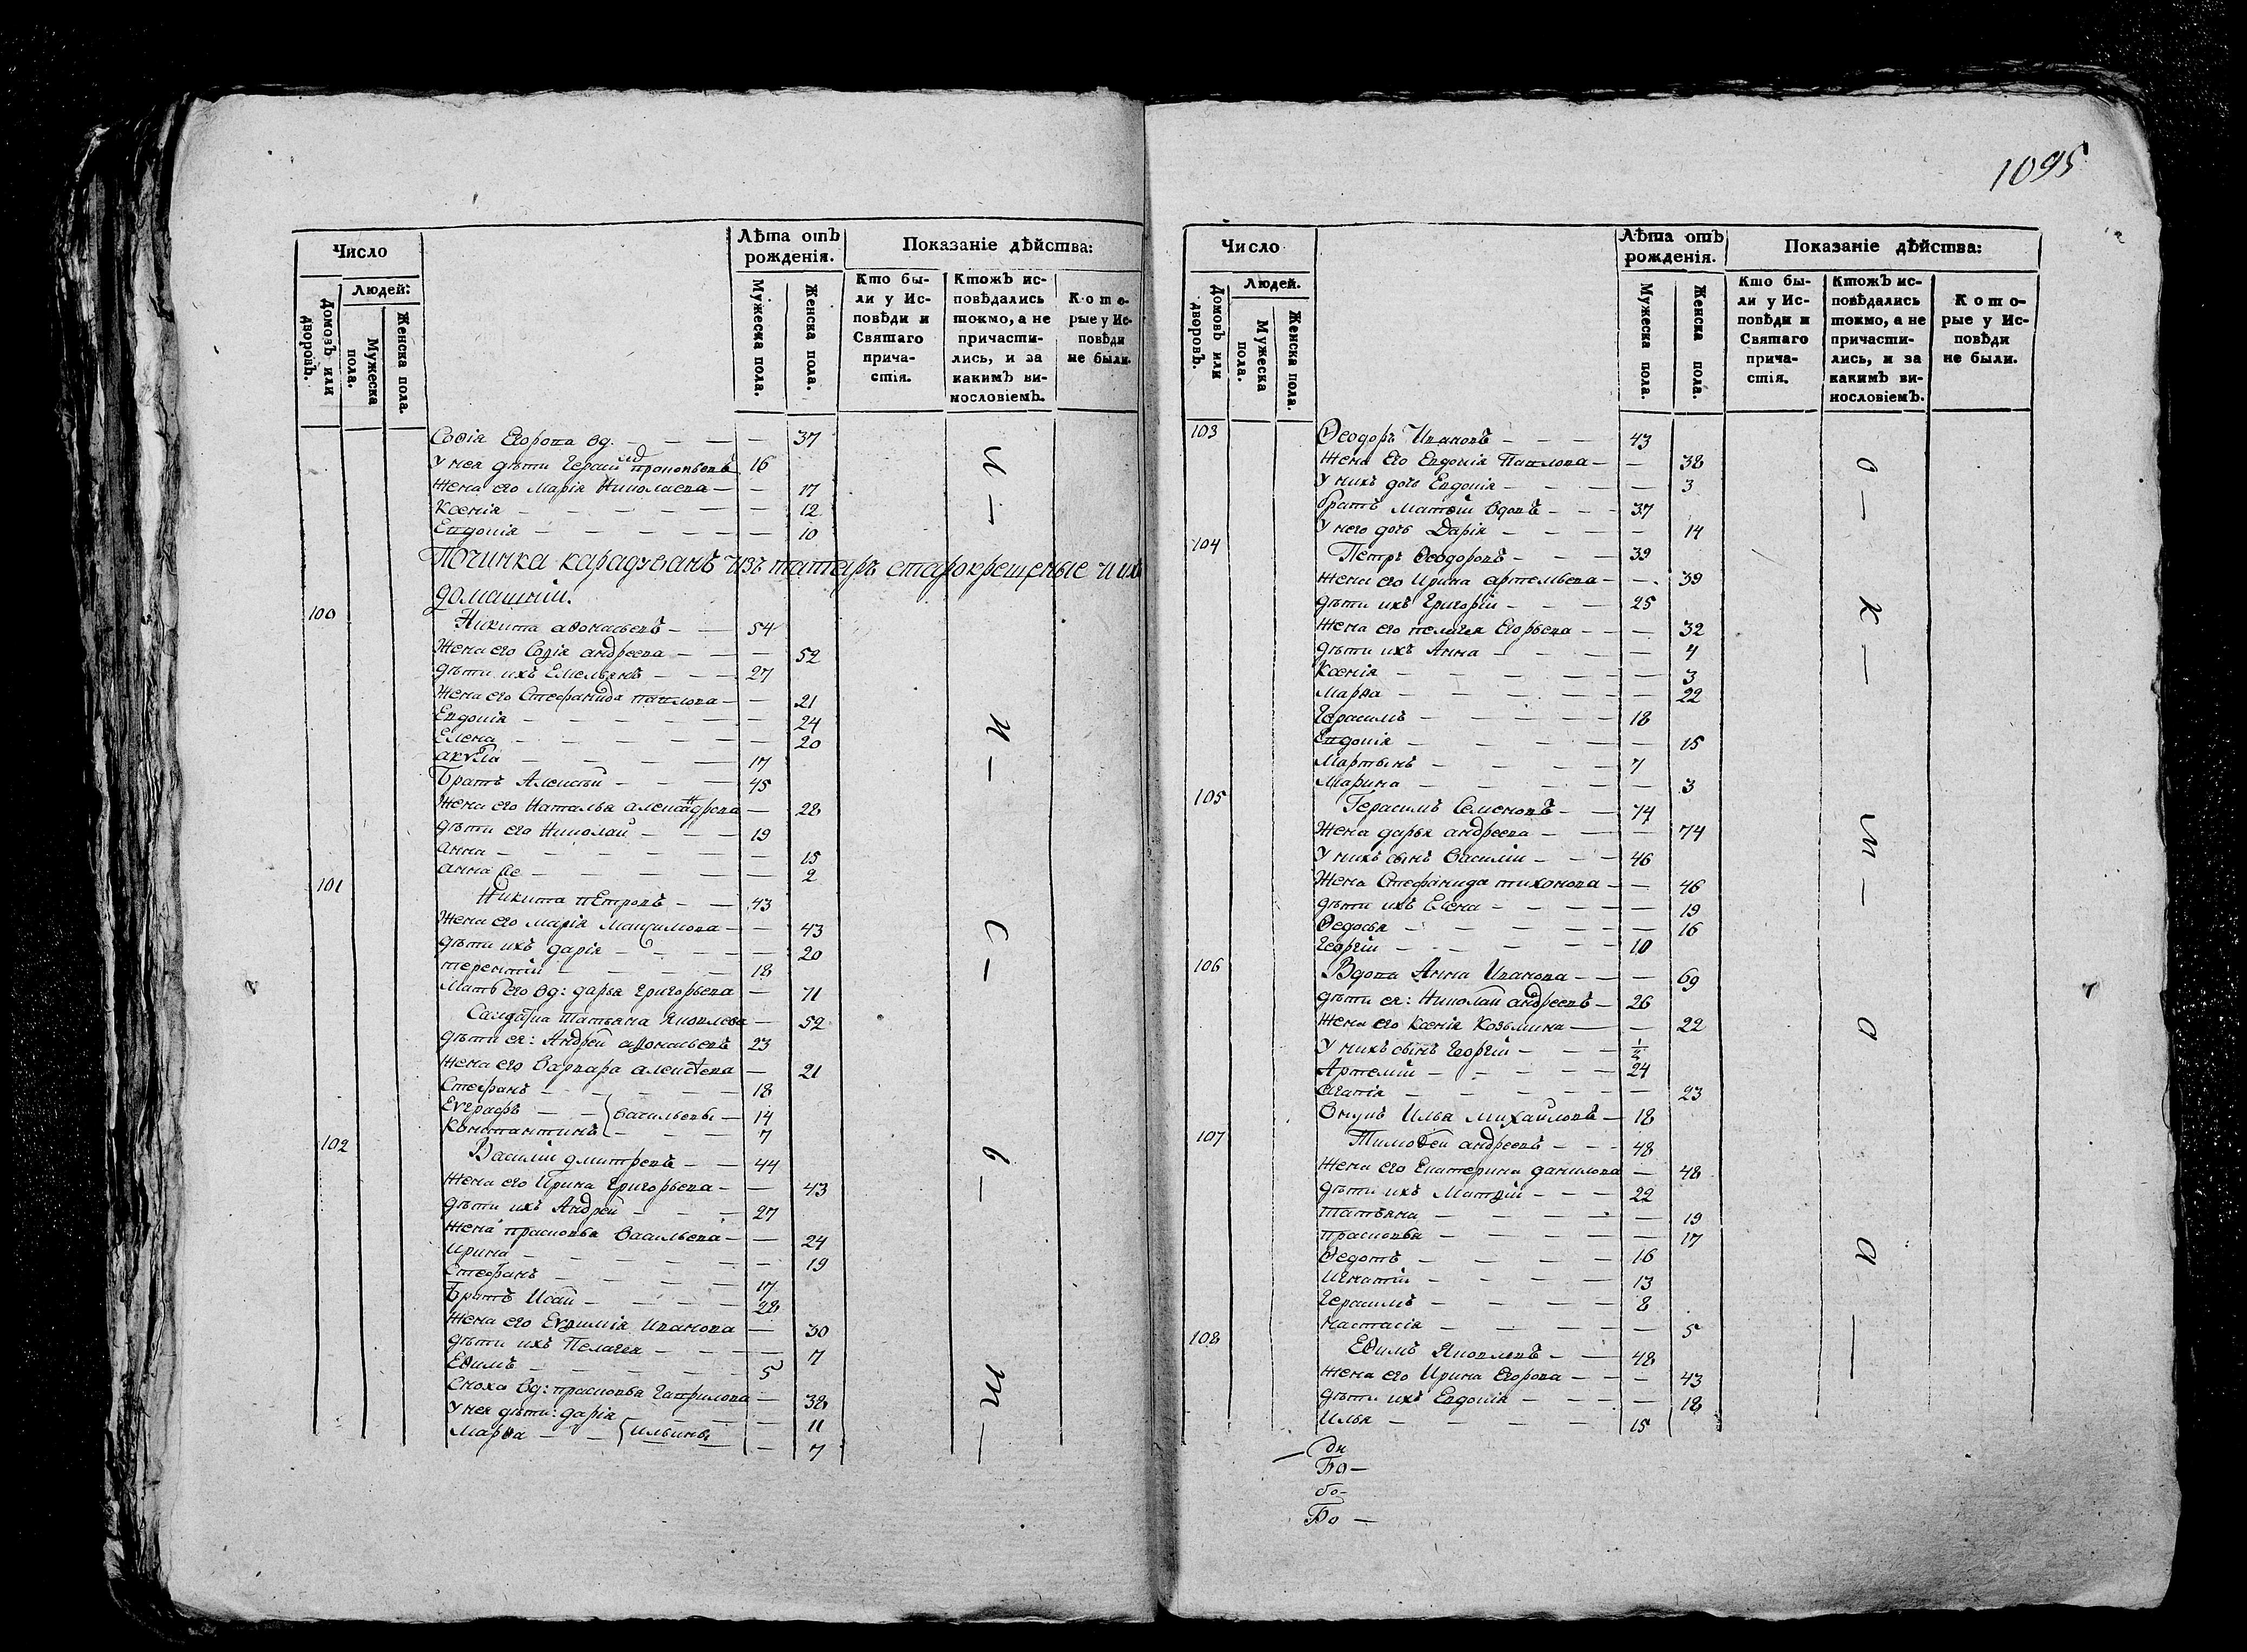 1095
Число
Людей:
Домовъ или дворовъ.
Мужеска пола.
Женска пола.
Лѣта отъ рожденія.
Мужеска пола.
Женска пола.
Показаніе дѣйства:
Кто были у Исповѣди и Святаго причастія.
Ктожъ исповѣдались токмо, а не причастились, и за какимъ винословіемъ.
Которые у Исповѣди не были.
Софія Егорова вд. — — — — 37
У нея дѣти Герасимъ Прокопьевъ 16
Жена его Марія Николаева — — 17
Ксенія — — — — — — 12
Евдокія — — — — — — 10
Починка Карадуванъ изъ татаръ старокрещеные и ихъ
домашніи.
100
Никита Афонасьевъ — — 54
Жена его Софія Андреева — — — 52
дѣти ихъ Емельянъ — — — 27
Жена его Стефанида Павлова — — 21
Евдокія — — — — — — 24
Елена — — — — — — 20
— — — — — 17
Братъ Алексѣй — — — 45
Жена его Наталья Александрова — 28
дѣти его Николай — — — 19
Анна — — — — — — 15
Анна же — — — — — — 2
101
Никита Петровъ — — 43
Жена его Марія Максимова — — 43
дѣти ихъ Дарія — — — — — 20
Терентій — — — — — 18
Мать его вд: Дарья Григорьева — 71
Салдатка Татьяна Яковлева — 52
дѣти ея: Андрей Афонасьевъ 23
Жена его Варвара Алексѣева — 21
Стефанъ — — — — — 18
Евграфъ — — Васильевы — 14
Константинъ — — — 7
102
Василій Дмитревъ — — 44
Жена его Ирина Григорьева — — 43
дѣти ихъ Андрей — — — 27
Жена Прасковья Васильева — — 24
Ирина — — — — — — 19
Стефанъ — — — — — 17
Братъ Исай — — — — 28
Жена его Евфимія Иванова — 30
дѣти ихъ Пелагея — — — — 7
Ефимъ — — — — — 5
Сноха вд: Прасковья Гаврилова — 38
У нея дѣти: Дарія — — — 11
Марфа — — Ильины — — 7
Число
Людей.
Домовъ или дворовъ.
Мужеска пола.
Женска пола.
Лѣта отъ рожденія.
Мужеска пола.
Женска пола.
Показаніе дѣйства:
Кто были у Исповѣди и Святаго причастія.
Ктожъ исповѣдались токмо, а не причастились, и за какимъ винословіемъ.
Которые у Исповѣди не были.
103
Ѳеодоръ Ивановъ — — — 43
Жена его Евдокія Павлова — — 38
У нихъ дочь Евдокія — — — — 3
братъ Матвѣй вдовъ — — — 37
У него дочь Дарія — — — — 14
104
Петръ Ѳеодоровъ — — — 39
Жена его Ирина Артемьева — — 39
дѣти ихъ Григорій — — — 25
Жена его Пелагея Егорьева — — — 32
дѣти ихъ Анна — — — — — 4
Ксенія — — — — — — 3
Марфа — — — — — — 22
Герасимъ — — — — — 18
Евдокія — — — — — — 15
Мартынъ — — — — — 7
Марина — — — — — — 3
105
Герасимъ Семеновъ — — 74
Жена Дарья Андреева — — — — 74
У нихъ сынъ Василій — — — 46
Жена Стефанида Тихонова — — 46
дѣти ихъ Елена — — — — — 19
Ѳедосья — — — — — — 16
Георгій — — — — — 10
106
Вдова Анна Иванова — — — 69
дѣти ея: Николай Андреевъ — 26
Жена его Ксенія Козьмина — — 22
У нихъ сынъ Георгій — — — 1/2
Артемій — — — — — 24
— — — — — — 23
Внукъ Илья Михайловъ — 18
107
Тимофей Андреевъ — — — 48
Жена его Екатерина Данилова — 48
дѣти ихъ Матвѣй — — — 22
Татьяна — — — — — — 19
Прасковья — — — — — — 17
Ѳедотъ — — — — — 16
Игнатій — — — — — 13
Герасимъ — — — — — 8
Настасія — — — — — — 5
108
Ефимъ Яковлевъ — — 48
Жена его Ирина Егорова — — — 43
дѣти ихъ Евдокія — — — — 18
Илья — — — — — 15
Бо —
бо-
Бо —